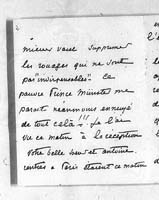 2
mieux vaut supprimer
les rouages qui ne sont
pas "indispensables" Ce
pauvre Prince Ministre me
paraît néanmoins ennuyé
de tout cela!!! Je l'ai
vu ce matin à la réception
Votre belle sœur et Antoine
rentrés à Paris étaient ce matin